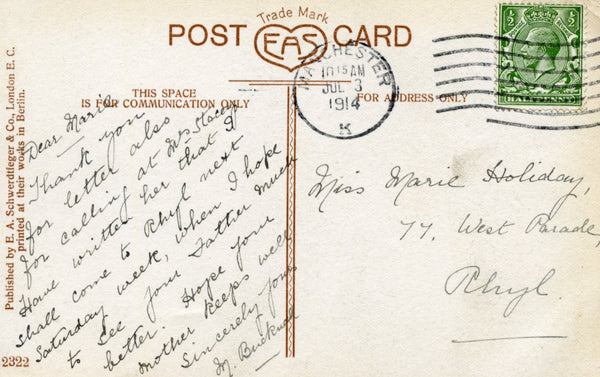 Trade Mark
POST CARD
EAS
THIS SPACE
IS FOR COMMUNICATION ONLY
FOR ADDRESS ONLY
MANCHESTER
10 15 AM
JUL 3
1914
K
½ ½
HALFPENNY
Dear Marie
Thank you
for letter also
for calling at Mrs Stacey
Have written her that I
shall come to Rhyl next
Saturday week, when I hope
to see your Father much
better. Hope your
mother keeps well
Sincerely yours
M.
Miss Marie Holiday,
77, West Parade,
Rhyl.
Published by E. A. Schwerdtfeger & Co., London E. C.
printed at their works in Berlin.
2322